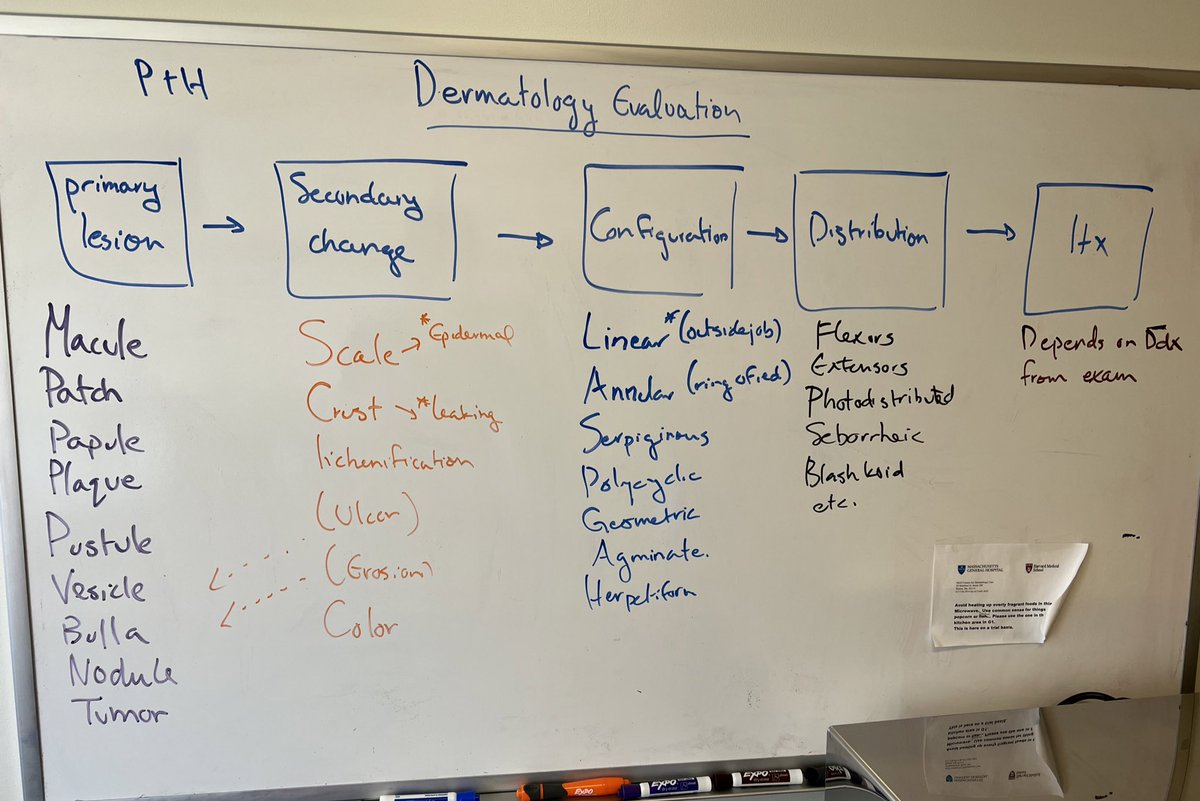 P+H
Dermatology Evaluation
primary
lesion
Secondary
change
Configuration
Distribution
Htx
Macule
Patch
Papule
Plaque
Pustule
Vesicle
Bulla
Nodule
Tumor
Scale → *Epidermal
Crust → *leaking
lichenification
(Ulcer)
(Erosion)
Color
Linear *(outside job)
Annular (ringofied)
Serpiginous
Polycyclic
Geometric
Agminate.
Herpetiform
Flexors
Extensors
Photodistributed
Seborrheic
Blashkoid
etc.
Depends on Ddx
from exam
MASSACHUSETTS
GENERAL HOSPITAL
Harvard Medical
School
Avoid heating up overly fragrant foods in this
Microwave. Use common sense for things
popcorn or fish. Please use the one in th
kitchen area in G1.
This is here on a trial basis.
EXPO
EXPO
EXPO